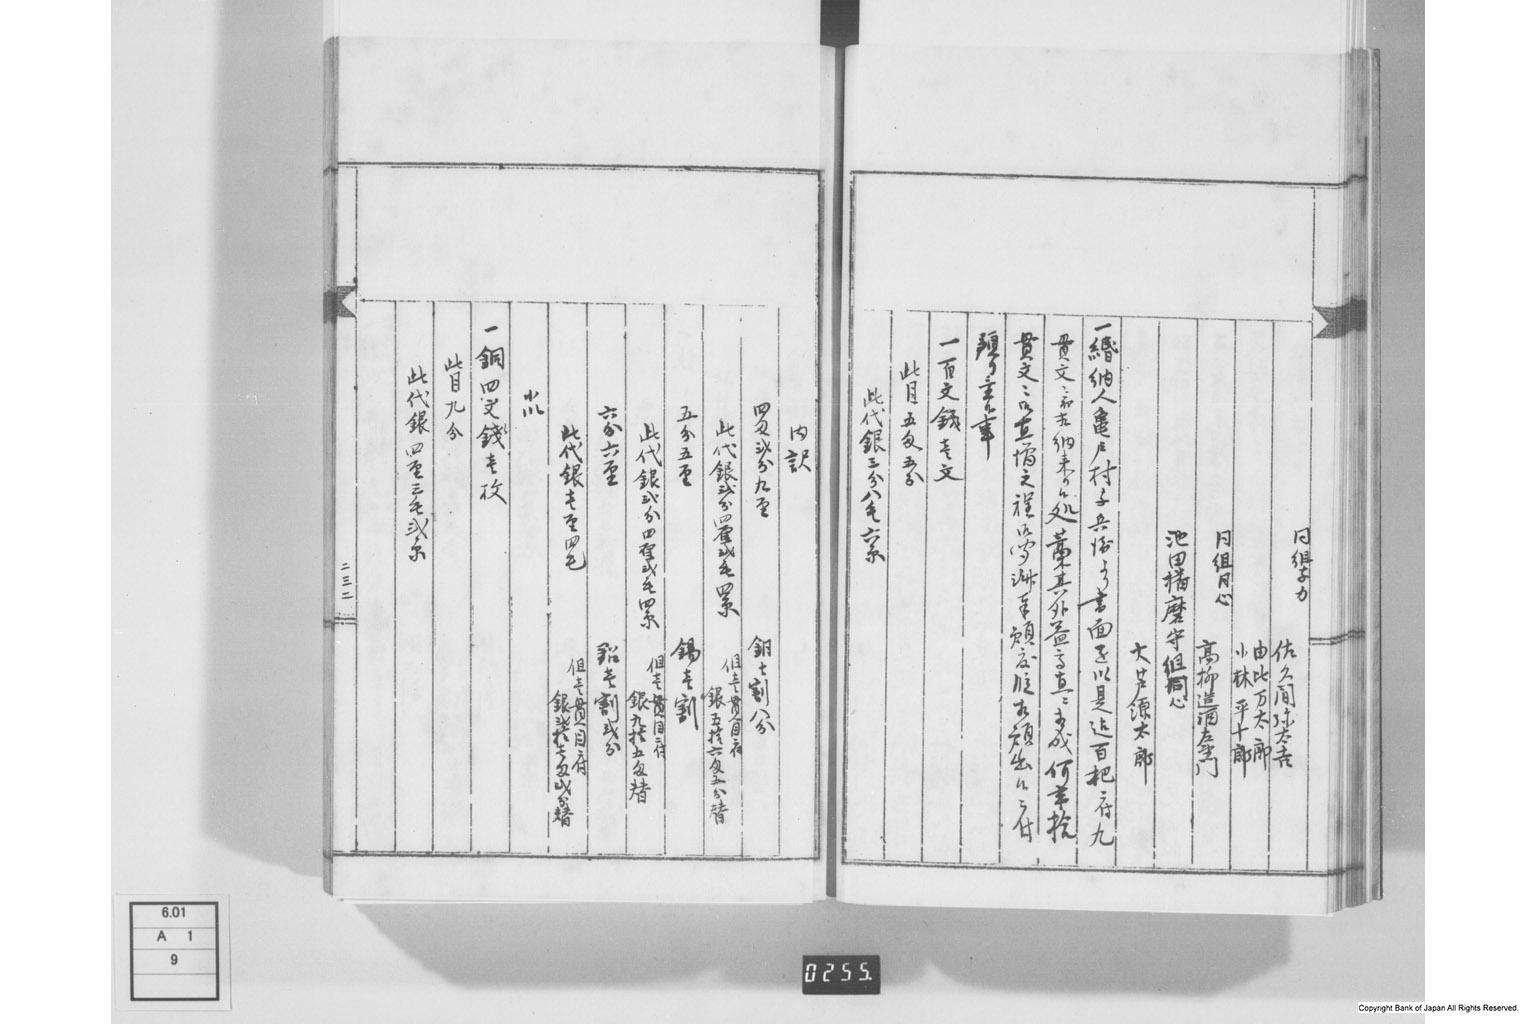 同組与力
佐久間弥太吉
由比万太郎
小林平十郎
同組同心
高柳造酒左衛門
池田播磨守組同心
大芦源太郎
一緡納人亀戸村子兵衛より書面を以是迄百把ニ付九
貫文ニ而相納来り候処藁其外益高直ニ相成何卒拾
貫文ニ御直増之程
願出候ニ付
一百文銭壱文
此目五匁五分
此代銀三分八毛六糸
内訳
四匁弐分九厘
銅七割八分
此代銀弐分四厘弐毛四糸
但壱貫目ニ付
銀五拾六匁五分替
五分五厘
錫壱割
此代銀弐分四厘弐毛四糸
但壱貫目ニ付
銀九拾五匁替
六分六厘
鉛壱割弐分
此代銀壱厘四毛
但壱貫目ニ付
銀弐拾壱匁弐分替
一銅四文銭壱枚
此目九分
此代銀四厘三毛弐糸
二三二
6.01
A 1
9
0255.
Copyright Bank of Japan All Rights Reserved.